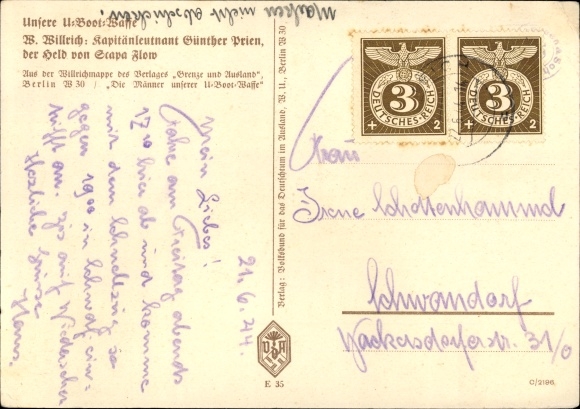 Marken nicht abschicken.
Unsere U=Boot=Waffe
W. Willrich: Kapitänleutnant Günther Prien,
der Held von Scapa Flow
Aus der Willrichmappe des Verlages „Grenze und Ausland“,
Berlin W 30 / „Die Männer unserer U=Boot=Waffe“
21.6.44.
Mein Lieber!
Fahre am Freitag abends
17.20 hier ab und komme
mit dem Schnellzug so
gegen 19 00 in Schwdf. ein-
trifft an. Bis auf Wiedersehen
Herzliche Grüsse
Hans.
Verlag: Volksbund für das Deutschtum im Ausland, W. U., Berlin W 30
VDA
E 35
DEUTSCHES REICH
3
+ 2
DEUTSCHES REICH
3
+ 2
Frau
Irene Schottenhammel
Schwandorf
Wackersdorferstr. 31/0
C/2196